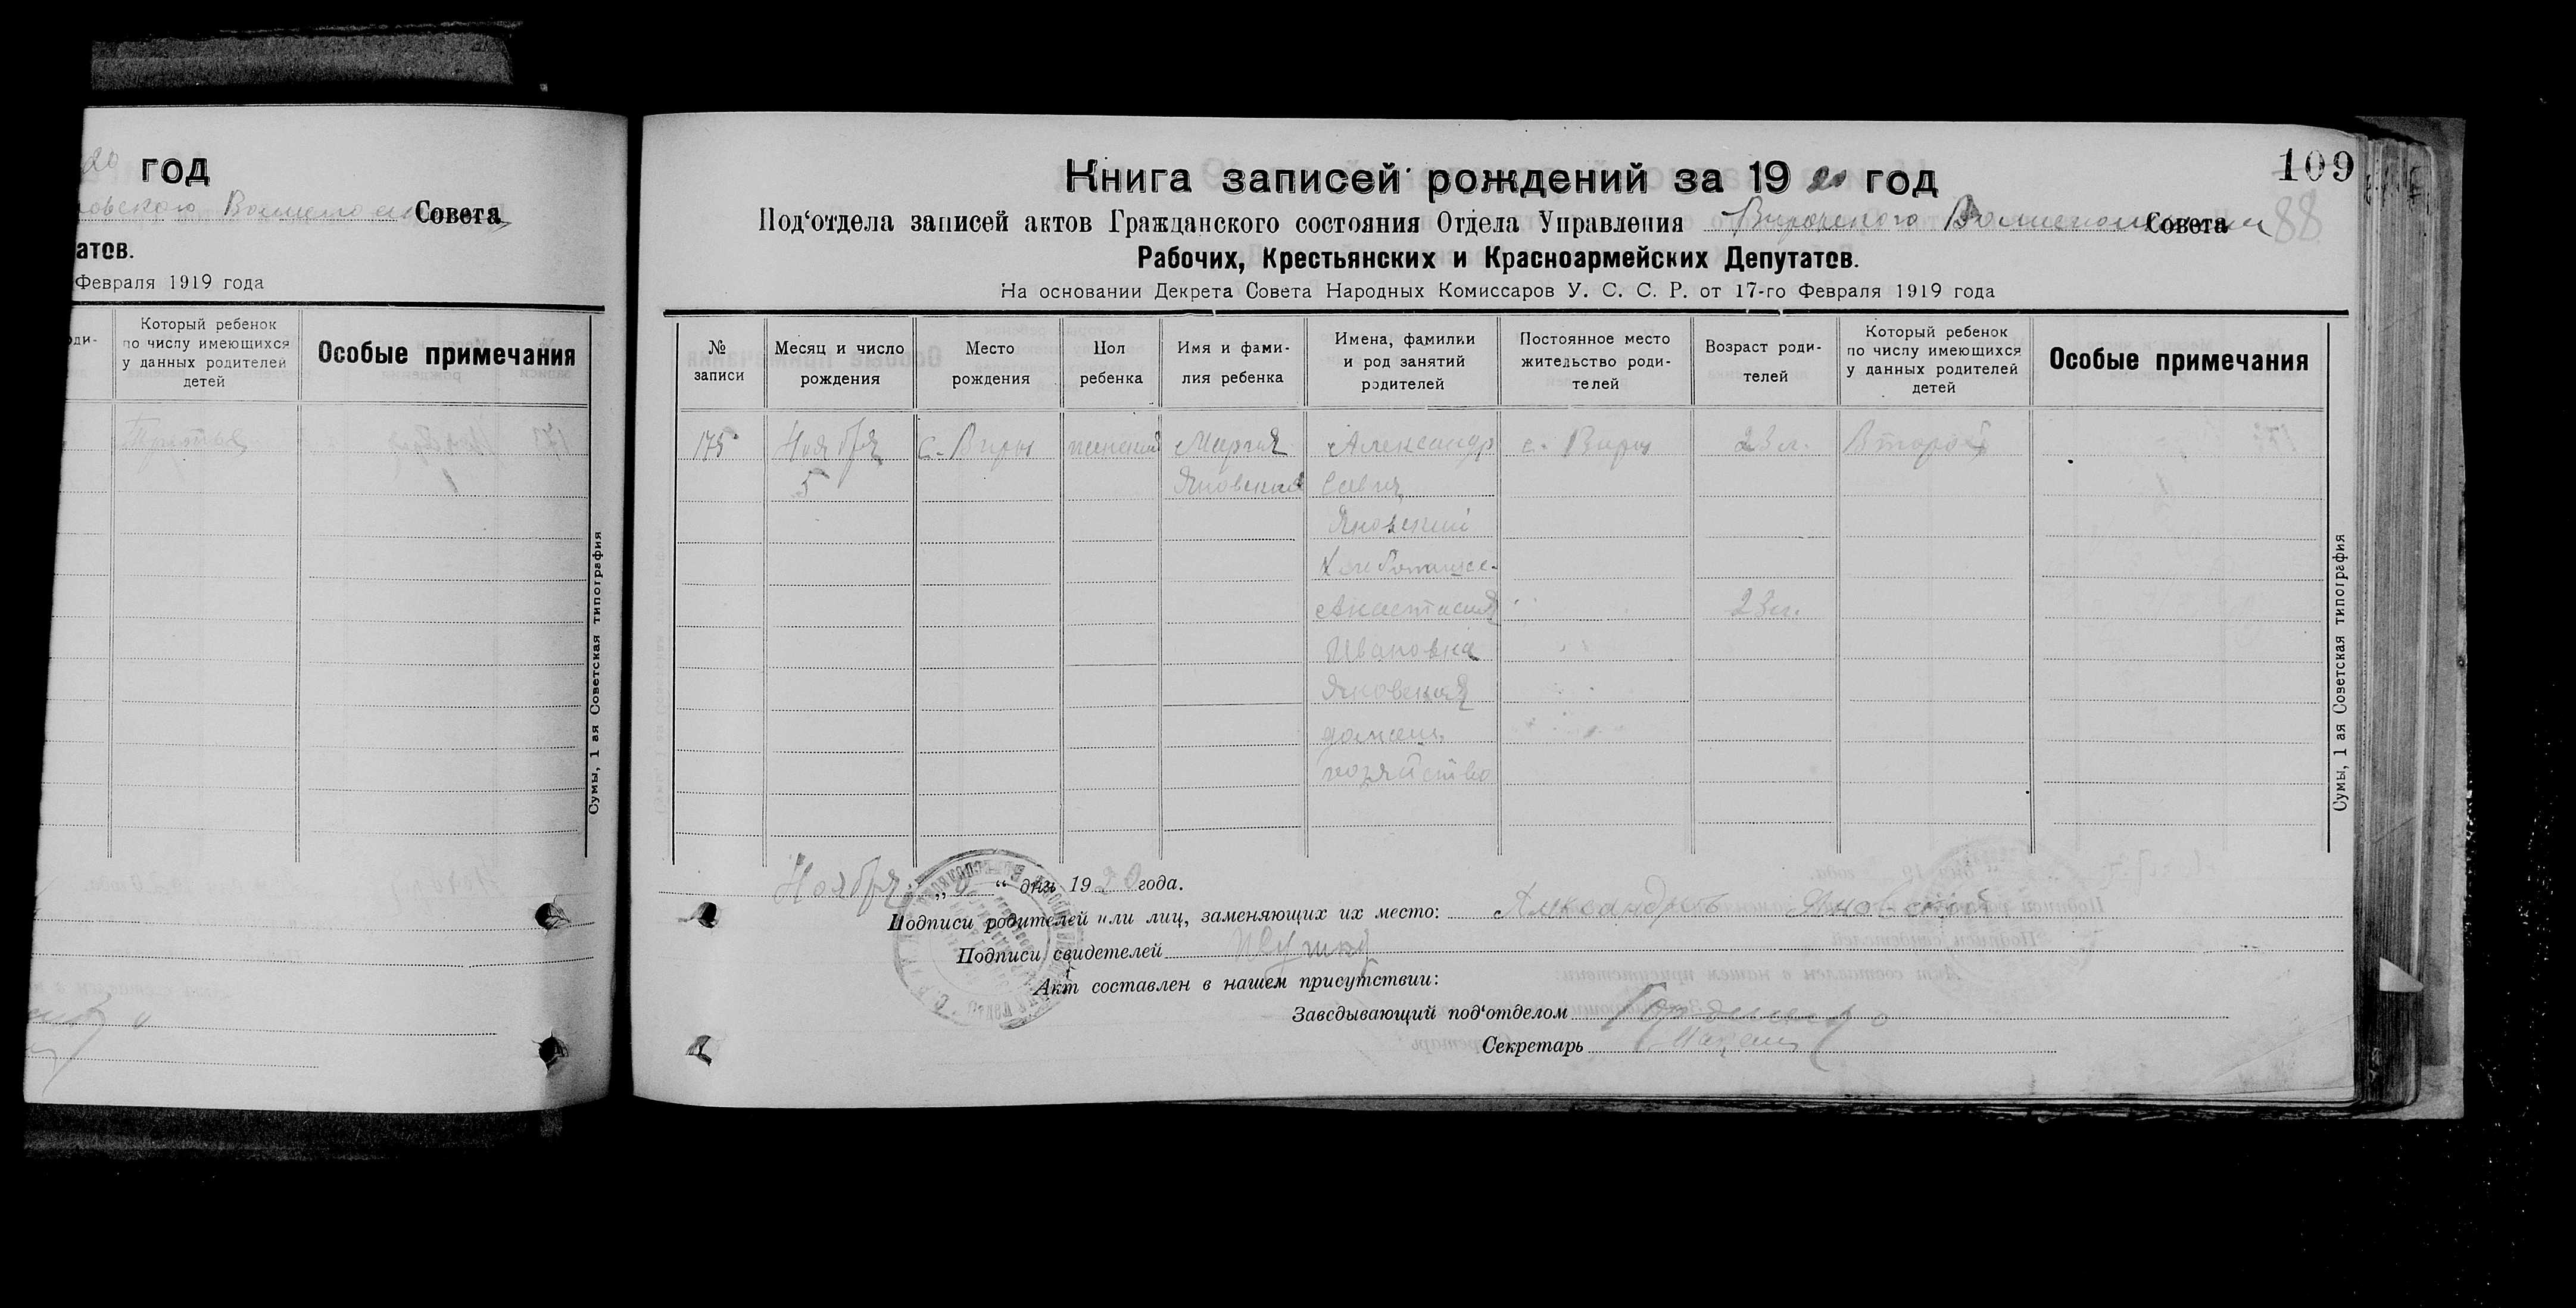 20 год
Совета
атов.
Февраля 1919 года
оди-
Который ребенок
по числу имеющихся
у данных родителей
детей
Особые примечания
Третья
Сумы, 1 ая Советская типография
109
88
Книга записей рождений за 19 20 год
Под‘отдела записей актов Гражданского состояния Отдела Управления Вировского Совета
Рабочих, Крестьянских и Красноармейских Депутатов.
На основании Декрета Совета Народных Комиссаров У. С. С. Р. от 17-го Февраля 1919 года
№
записи
Месяц и число
рождения
Место
рождения
Пол
ребенка
Имя и фами-
лия ребенка
Имена, фамилии
и род занятий
родителей
Постоянное место
жительство роди-
телей
Возраст роди-
телей
Который ребенок
по числу имеющихся
у данных родителей
детей
Особые примечания
175 Ноября с. Виры женский Мария Александр с. Виры 23 л. Второй
5 Яновская Савич
Яновский
Хлебопашец
Анастасия 23 л.
Ивановна
Яновская
домаш.
хозяйство
Сумы, 1 ая Советская типография
Ноября „ “ дня 1920 года.
Подписи родителей или лиц, заменяющих их место: Александръ Яновский
Подписи свидетелей
Акт составлен в нашем присутствии:
Заведывающий под‘отделом
Секретарь